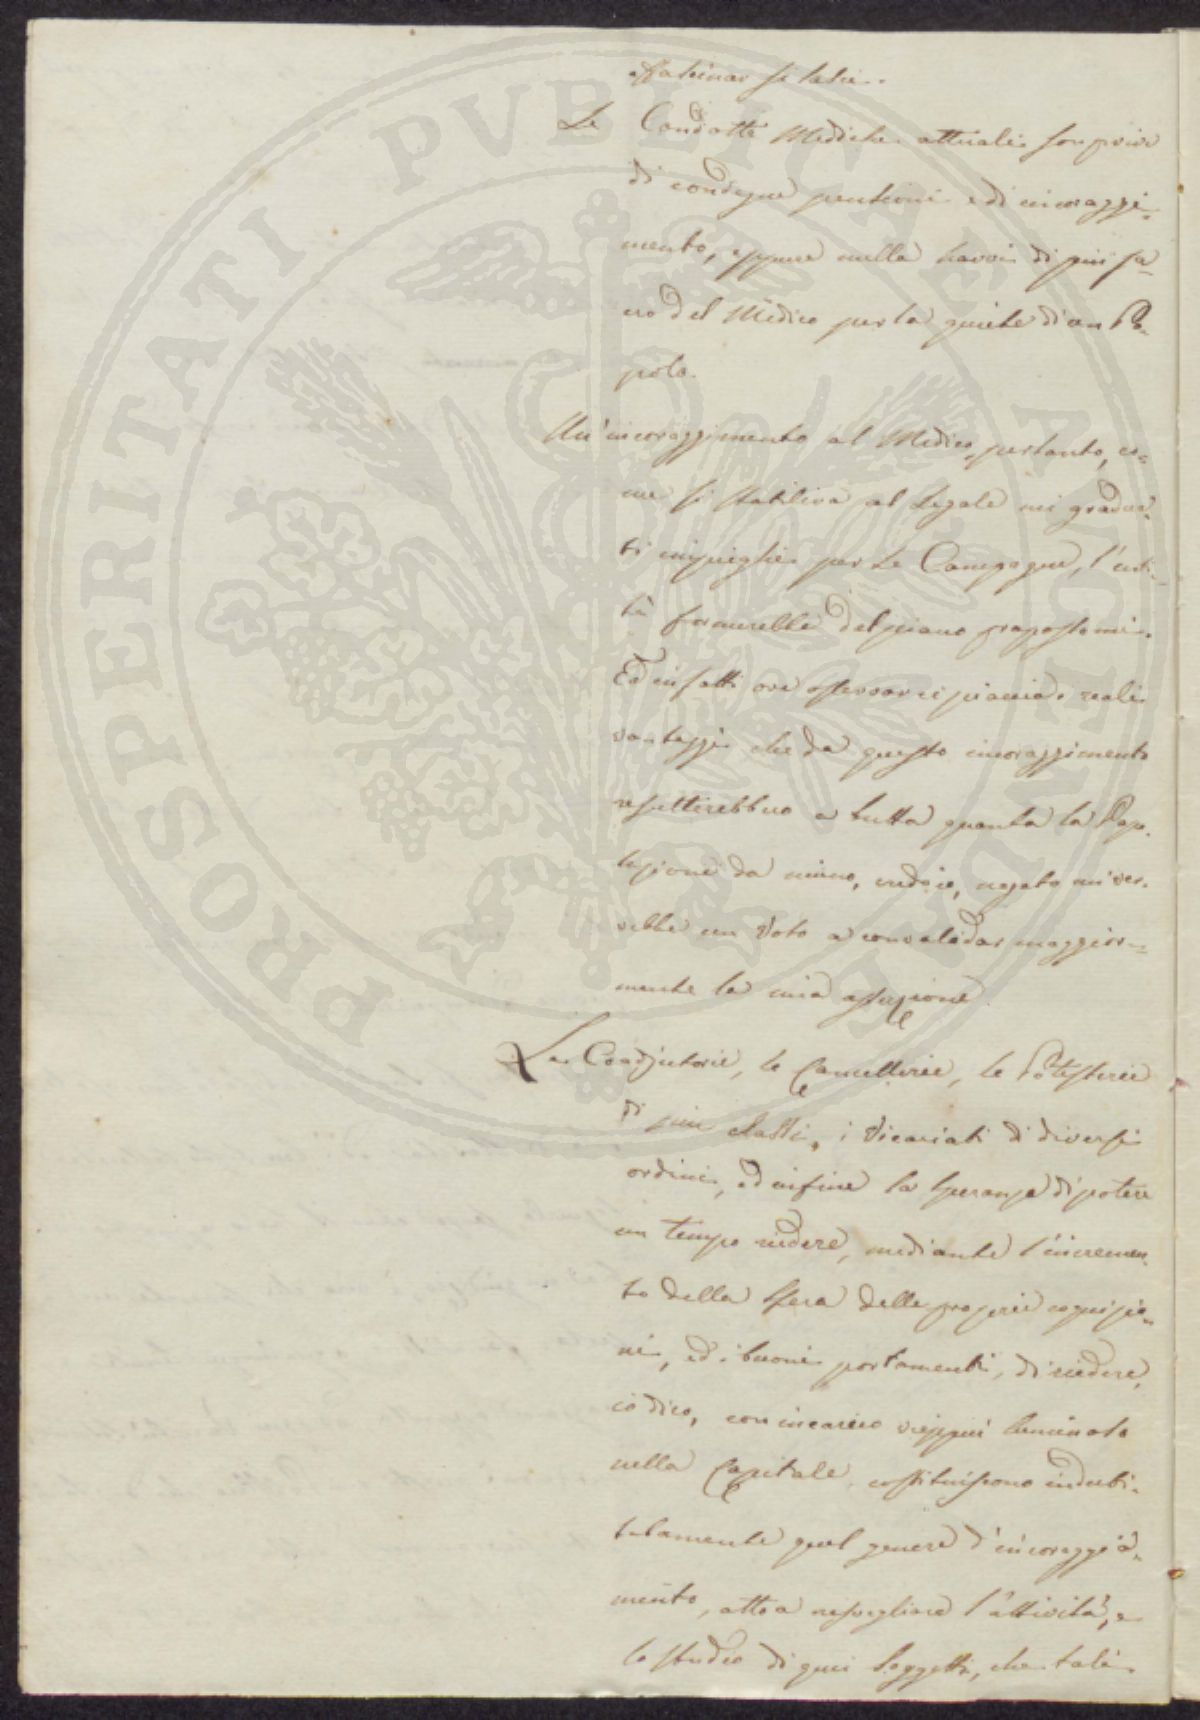 Le Condotte Mediche attuali son prive
di condegne pensioni e di incoraggi=
mento, eppure nulla havvi di più sa=
cro del Medico per la quiete d'un Po=
polo.
Un' incoraggimento al Medico pertanto, co=
me si stabiliva al Legale nei gradua=
ti impieghi per le Campagne, l'enti=
tà formerebbe del piano propostomi.
Ed infatti ove osservar ci piaccia i reali
vantaggi che da questo incoraggimento
refletterebbero a tutta quanta la Popo=
lazione da niuno, cred'io, negato mi ver=
rebbe un Voto a convalidar maggior=
mente la mia assezione.
Le Coadjutorie, le Cancellerie, le Potesterie
di più classi, i Vicariati di diversi
ordini, ed infine la speranza di potere
un tempo riedere, mediante l'incremen=
to della sfera delle proprie cognizio=
ni, ed i buoni portamenti, di riedere,
io dico, con incarico vieppiù luminoso
nella Capitale costituiscono indubi=
tatamente quel genere d'incoraggia=
mento, atto a risvegliare l'attività, e
lo studio di quei Soggetti, che tali
PROSPERITATI PVBLICAE AVGENDAE